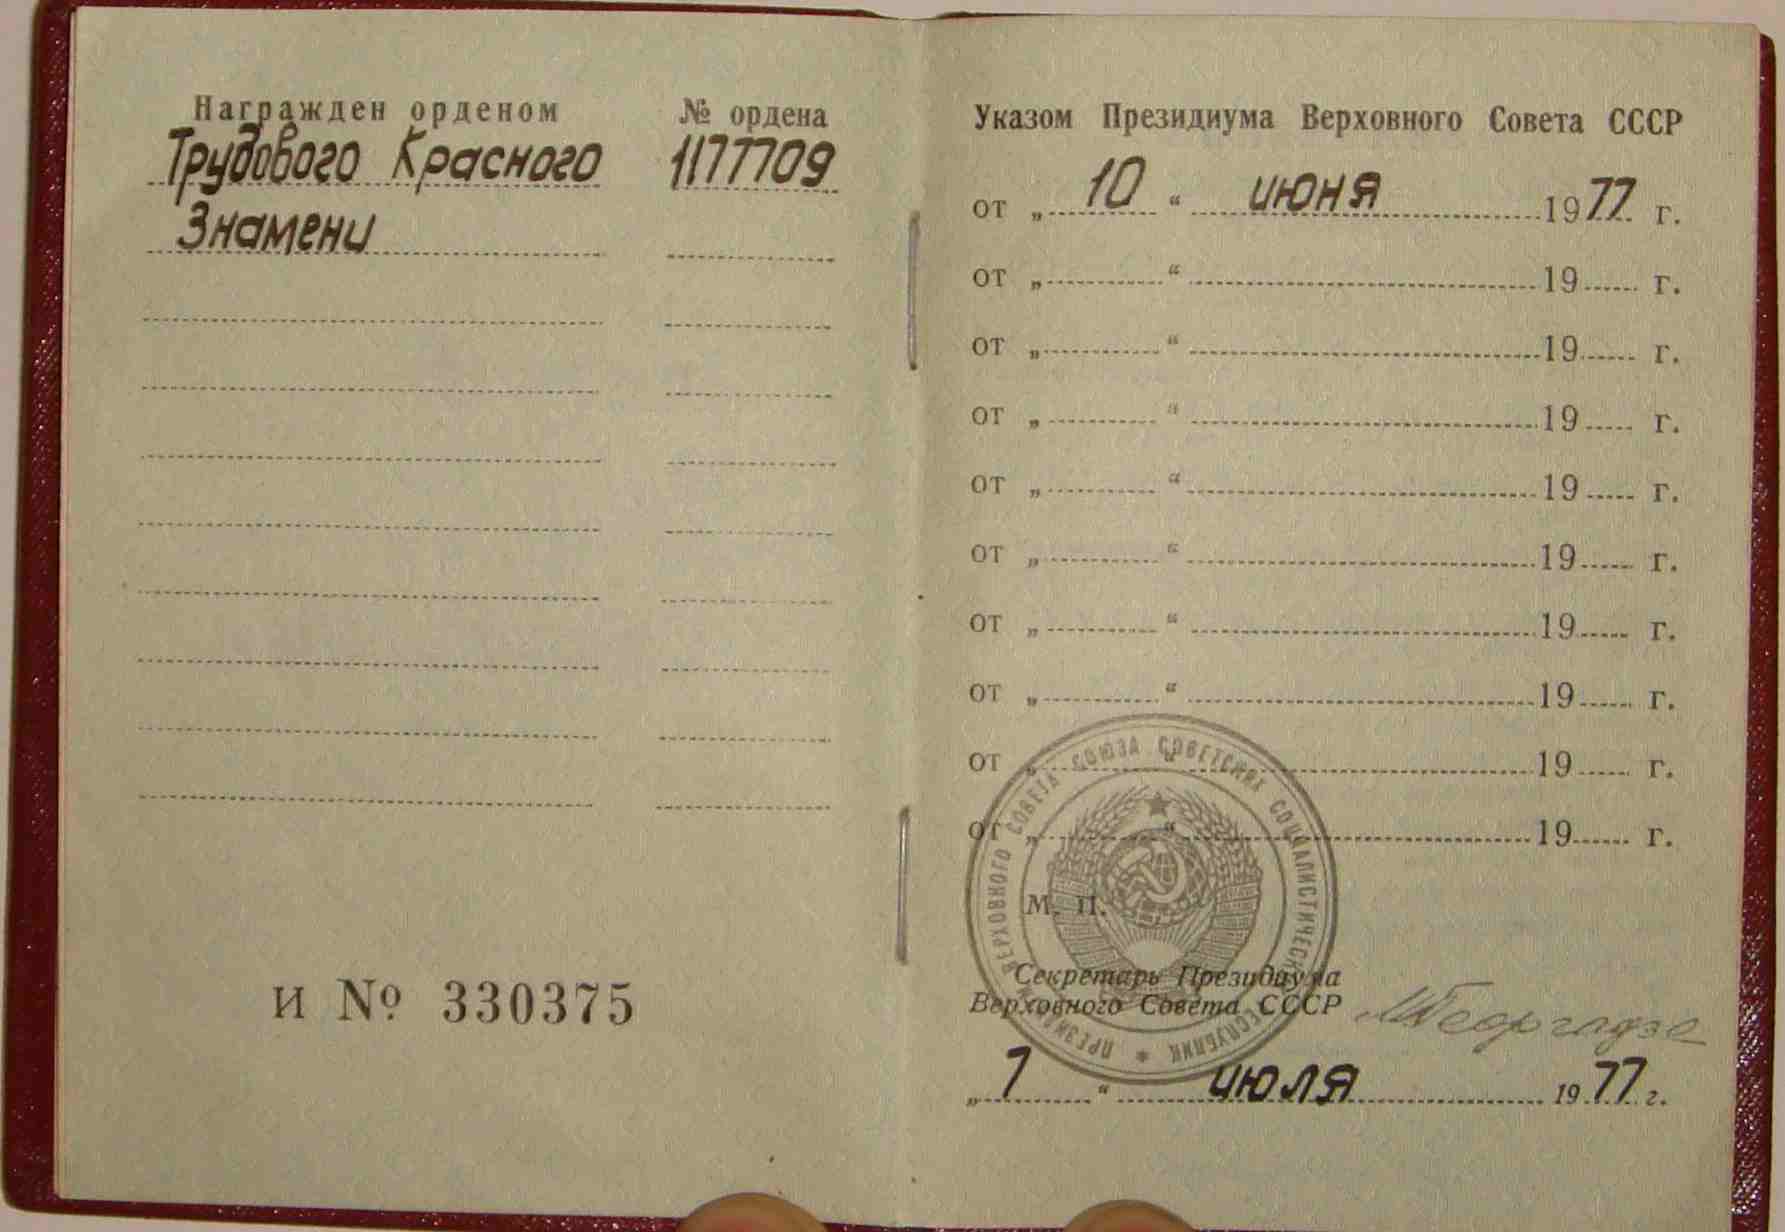 Награжден орденом № ордена
Трудового Красного 1177709
Знамени
И № 330375
Указом Президиума Верховного Совета СССР
от „ 10 “ июня 1977 г.
от „ “ 19 г.
от „ “ 19 г.
от „ “ 19 г.
от „ “ 19 г.
от „ “ 19 г.
от „ “ 19 г.
от „ “ 19 г.
от „ “ 19 г.
от „ “ 19 г.
М. П.
ПРЕЗИДИУМ ВЕРХОВНОГО СОВЕТА СОЮЗА СОВЕТСКИХ СОЦИАЛИСТИЧЕСКИХ РЕСПУБЛИК *
Секретарь Президиума
Верховного Совета СССР МГеоргадзе
„ 1 “ июля 1977 г.